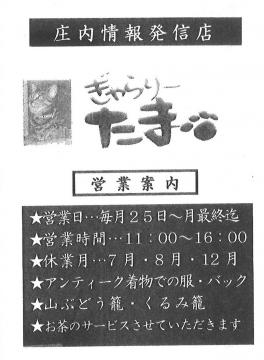 庄内情報発信店
ぎゃらりー
たまご
営業案内
★営業日…毎月25日～月最終迄
★営業時間…11：00～16：00
★休業月…7月・8月・12月
★アンティーク着物での服・バック
★山ぶどう籠・くるみ籠
★お茶のサービスさせていただきます